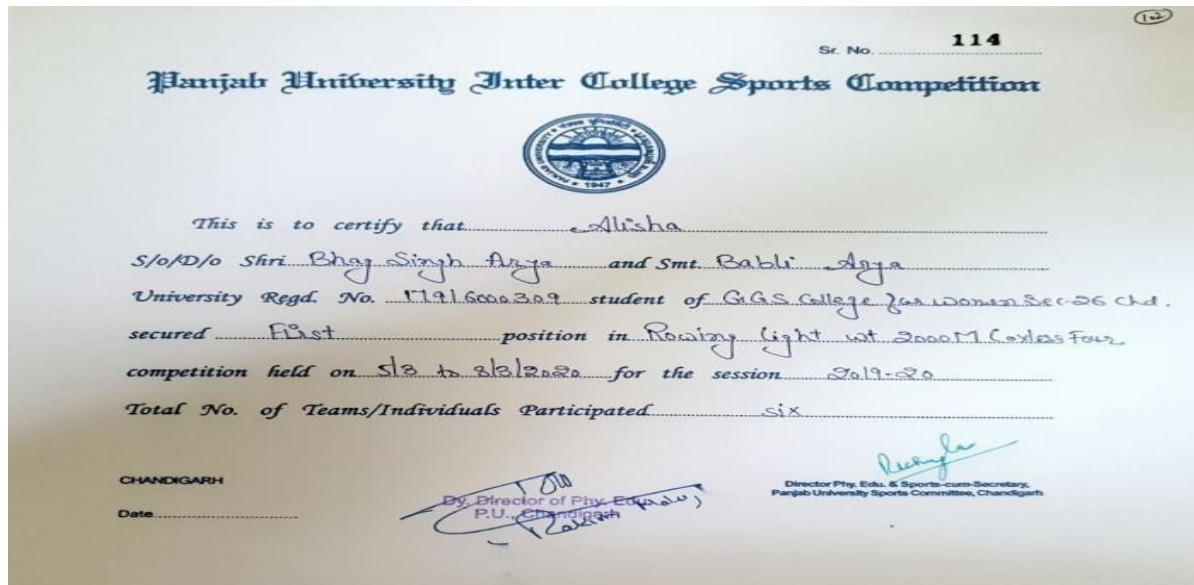 102
Sr. No. 114
Panjab University Inter College Sports Competition
PANJAB UNIVERSITY
1947
This is to certify that Alisha
S/o/D/o Shri Bhag Singh Arya and Smt. Babli Arya
University Regd. No. 17916000309 student of GGS College for women Sec-26 Chd.
secured First position in Rowing light wt 2000M Coxless Four
competition held on 5/3 to 8/3/2020 for the session 2019-20
Total No. of Teams/Individuals Participated six
CHANDIGARH
Date
Dy. Director of Phy. Edu.
P.U., Chandigarh
Director Phy. Edu. & Sports-cum-Secretary,
Panjab University Sports Committee, Chandigarh